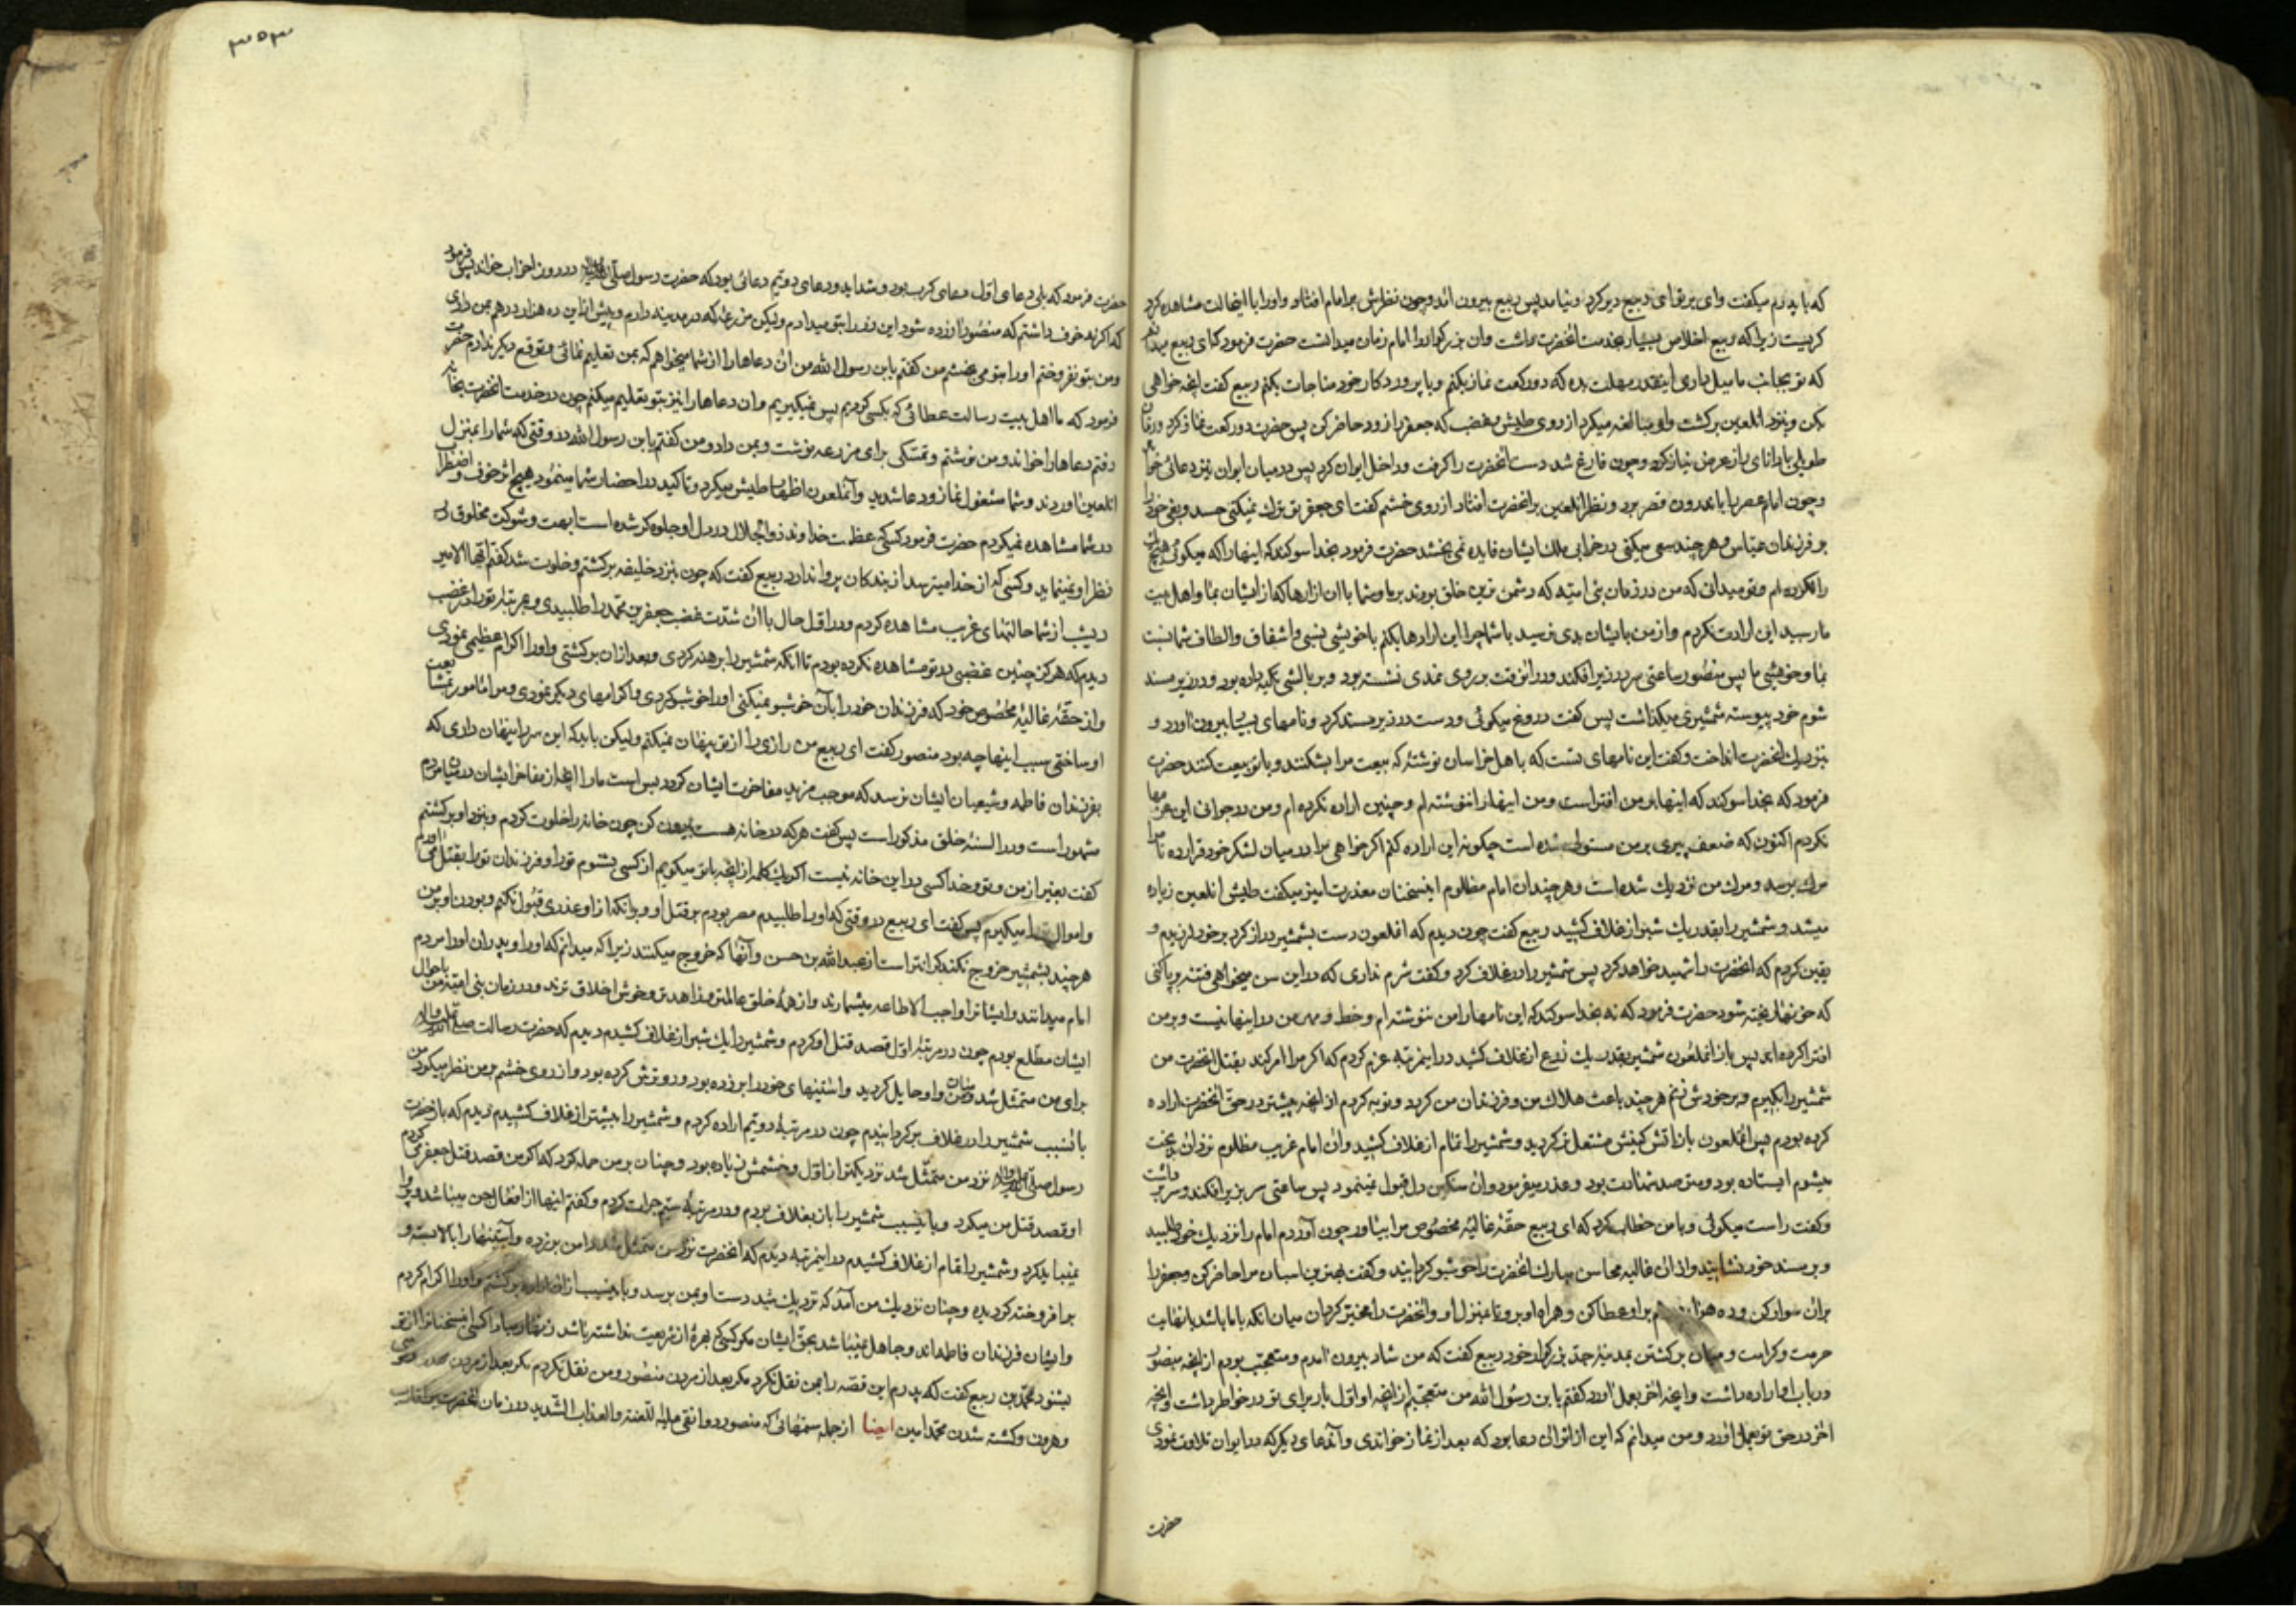 که با پدرم میکفت وای بر تو ای ربیع دیر کرد و نیامد پس ربیع بیرون امد و چون نظرش بر امام افتاد و اورا با اینحالت مشاهده کرد
کریست زیرا که ربیع اخلاص بسیار بخدمت انحضرت داشت وان بزرکوار را امام زمان میدانست حضرت فرمود که ای ربیع میدانم
که تو بجانب ما میل داری اینقدر مهلت بده که دو رکعت نماز بکنم و با پروردکار خود مناجات بکنم ربیع کفت انچه خواهی
بکن و بنزد انلعین برکشت واو مبالغه میکرد از روی طیش و غضب که جعفر را زود حاضر کن پس حضرت دو رکعت نماز کرد و زمان
طویلی با دانای راز عرض نیاز کرد و چون فارغ شد دست انحضرت را کرفت و داخل ایوان کرد پس در میان ایوان نیز دعائی خواند
و چون امام عصر را باندرون قصر برد و نظر انلعین بر انحضرت افتاد از روی خشم کفت ای جعفر تو ترک نمیکنی حسد و بغی خود را
بر فرزندان عباس و هر چند سعی میکنی در خرابی ملک ایشان فایده نمی بخشد حضرت فرمود بخدا سوکند که اینها را که میکوئی هیچ یک
را نکرده ام و تو میدانی که من در زمان بنی امیه که دشمن ترین خلق بودند بر ما و شما با ان ازارها که از ایشان بما و اهل بیت
ما رسید این ارادت نکردم و از من بایشان بدی نرسید با شما چرا این ارادها بکنم با خویشی نسبی و اشفاق والطاف شما نسبت
بما و خویشی ما پس منصور ساعتی سر در زیر افکند و در انوقت بر روی نمدی نشسته بود و بر بالشی تکیه داده بود و در زیر مسند
شوم خود پیوسته شمشیری میکذاشت پس کفت دروغ میکوئی و دست در زیر مسند کرد و نامهای بسیار بیرون اورد و
بنزدیک انحضرت انداخت و کفت این نامهای تست که باهل خراسان نوشتهٔ که بیعت مرا بشکنند و با تو بیعت کنند حضرت
فرمود که بخدا سوکند که اینها بر من افتراست و من اینها را ننوشته ام و چنین اراده نکرده ام و من در جوانی این عزمها
نکردم اکنون که ضعف پیری بر من مستولی شده است چکونه این اراده کنم اکر خواهی مرا در میان لشکر خود قرار ده تا مرا
مرک برسد و مرک من نزدیک شده است و هر چندان امام مظلوم اینسخنان معذرت امیز میکفت طیش انلعین زیاده
میشد و شمشیر را بقدر یک شبر از غلاف کشید ربیع کفت چون دیدم که انملعون دست بشمشیر دراز کرد بر خود لرزیدم و
یقین کردم که انحضرت را شهید خواهد کرد پس شمشیر را در غلاف کرد و کفت شرم نداری که در این سن میخواهی فتنه برپا کنی
که خونها ریخته شود حضرت فرمود که نه بخدا سوکند که این نامها را من ننوشته ام و خط و مهر من در اینها نیست و بر من
افترا کرده اند پس باز انملعون شمشیر بقدر یک ذرع از غلاف کشید در اینمرتبه عزم کردم که اکر مرا امر کند بقتل انحضرت من
شمشیر را بکیرم و بر خودش بزنم هر چند باعث هلاک من و فرزندان من کردد و توبه کردم از انچه پیشتر در حق انحضرت اراده
کرده بودم پس انملعون باز اتش کینش مشتعل کردید و شمشیر را تمام از غلاف کشید وان امام غریب مظلوم نزد ان بدبخت
میشوم ایستاده بود و مترصد شهادت بود و عذر میفرمود وان سنکین دل قبول نمینمود پس ساعتی سر بزیر افکند و سر برداشت
و کفت راست میکوئی و با من خطاب کرد که ای ربیع حقهٔ غالیهٔ مخصوص مرا بیاور چون آوردم امام را نزدیک خود طلبید
و بر مسند خود نشانید و از ان غالیه محاسن مبارک انحضرت را خوشبو کردانید و کفت بهترین اسبان مرا حاضر کن و جعفر را
بران سوار کن و ده هزار درهم بر او عطا کن و همراه او برو تا بمنزل او و انحضرت را مخیر کردان میان انکه با ما باشد با نهایت
حرمت و کرامت و میان برکشتن بمدینهٔ جد بزرکوار خود ربیع کفت که من شاد بیرون امدم و متعجب بودم از انچه منصور
در باب او اراده داشت وانچه اخر بعمل اورد کفتم یابن رسول الله من متعجبم از انچه او اول بار برای تو در خواطر داشت و انچه
اخر در حق تو بعمل اورد و من میدانم که این از اثر ان دعا بود که بعد از نماز خواندی و آندعای دیکر که در ایوان تلاوت نمودی
حضرت
۳۵۳
حضرت فرمود که بلی دعای اول دعای کرب بود و شداید و دعای دویم دعائی بود که حضرت رسول صلی الله علیه و اله در روز احزاب خواند پس فرمود
که اکر نه خوف داشتم که منصور ازرده شود این زر را بتو میدادم و لیکن مزرعهٔ که در مدینه دارم و پیش از این ده هزار درهم بمن دادی
و من بتو نفروختم اورا بتو می بخشم من کفتم یابن رسول الله من ان دعاها را از شما میخواهم که بمن تعلیم نمائی و توقع دیکر ندارم حضرت
فرمود که ما اهل بیت رسالت عطائی که بکسی کردیم پس نمیکیریم وان دعاها را نیز بتو تعلیم میکنم چون در خدمت انحضرت بخانه
رفتم دعاها را خواند و من نوشتم و تمسکی برای مزرعه نوشت و بمن داد و من کفتم یابن رسول الله در وقتی که شما را بمنزل
انلعین اوردند و شما مشغول نماز و دعا شدید و آنملعون اظهار طیش میکرد و تاکید در احضار شما مینمود هیچ اثر خوف و اضطراب
در شما مشاهده نمیکردم حضرت فرمود کسی که عظمت خداوند ذو الجلال در دل او جلوه کر شده است ابهت و شوکت مخلوق در
نظر او نمینماید و کسی که از خدا میترسد از بندکان پروا ندارد ربیع کفت که چون بنزد خلیفه برکشتم و خلوت شد کفتم ایها الامیر
دیشب از شما حالتهای غریب مشاهده کردم و در اول حال با ان شدت غضب جعفر بن محمد را طلبیدی و بمرتبهٔ تو را در غضب
دیدم که هرکز چنین غضبی در تو مشاهده نکرده بودم تا انکه شمشیر را برهنه کردی و بعد از ان برکشتی و اورا اکرام عظیمی نمودی
و از حقهٔ غالیهٔ مخصوص خود که فرزندان خود را بآن خوشبو نمیکنی اورا خوشبو کردی و اکرامهای دیکر نمودی و مرا مامور بمشایعت
او ساختی سبب اینها چه بود منصور کفت ای ربیع من رازی را از تو پنهان نمیکنم و لیکن باید که این سر را پنهان داری که
بفرزندان فاطمه و شیعیان ایشان نرسد که موجب مزید مفاخرت ایشان کردد بس است ما را انچه از مفاخر ایشان در میان مردم
مشهور است و در السنهٔ خلق مذکور است پس کفت هر که در خانه هست بیرون کن چون خانه را خلوت کردم و بنزد او برکشتم
کفت بغیر از من و تو و خدا کسی در این خانه نیست اکر یک کلمه از انچه با تو میکویم از کسی بشنوم تو را و فرزندان تو را بقتل می اورم
و اموال ترا میکیرم پس کفت ای ربیع در وقتی که اورا طلبیدم مصر بودم بر قتل او و بر انکه از او عذری قبول نکنم و بودن او بر من
هر چند بشمشیر خروج نکند کرانتر است از عبد الله بن حسن و آنها که خروج میکنند زیرا که میدانم که اورا و پدران اورا مردم
امام میدانند و ایشان را واجب الاطاعه میشمارند و از همهٔ خلق عالمتر و زاهدتر و خوش اخلاق ترند و در زمان بنی امیه من باحوال
ایشان مطلع بودم چون در مرتبهٔ اول قصد قتل او کردم و شمشیر را یک شبر از غلاف کشیدم دیدم که حضرت رسالت صلی الله علیه و اله
برای من متمثل شد و میان من و او حایل کردید و استینهای خود را بر زده بود و رو ترش کرده بود و از روی خشم بر من نظر میکرد من
بانسبب شمشیر را در غلاف برکردانیدم چون در مرتبهٔ دویم اراده کردم و شمشیر را بیشتر از غلاف کشیدم دیدم که باز حضرت
رسول صلی الله علیه و اله نزد من متمثل شد نزدیکتر از اول و خشمش زیاده بود و چنان بر من حمله کرد که اکر من قصد قتل جعفر می کردم
او قصد قتل من میکرد و باینسبب شمشیر را باز بغلاف بردم و در مرتبهٔ سیم جرات کردم و کفتم اینها از افعال جن میباشد و پروا
نمیباید کرد و شمشیر را تمام از غلاف کشیدم در اینمرتبه دیدم که انحضرت نزد من متمثل شد دامن بر زده و آستینها را بالا بسته و
بر افروخته کردیده و چنان نزدیک من آمد که نزدیک شد دست او بمن برسد و باینسبب از ان اراده برکشتم و اورا اکرام کردم
و ایشان فرزندان فاطمه اند و جاهل نمیباشد بحق ایشان مکر کسی که بهرهٔ از شریعت نداشته باشد زنهار مبادا کسی اینسخنان را از تو
بشنود محمد بن ربیع کفت که پدرم این قصه را بمن نقل نکرد مکر بعد از مردن منصور و من نقل نکردم مکر بعد از مردن مهدی و موسی
و هرون و کشته شدن محمد امین ایضا از جمله ستمهائی که منصور دوانقی علیه اللعنه والعذاب الشدید در زمان انحضرت